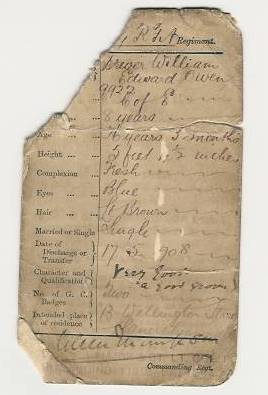 R F A Regiment.
William
Edward Owen
9922
C of E
8 years
Age ... 26 years 5 months
Height ... ... 5 feet inches
Complexion Fresh
Eyes ... ... Blue
Hair ... ... Lt Brown
Married or Single Single
Date of
Discharge or
Transfer 17 5 908
Character and
Qualification Very Good
(a good groom)
No. of G. C.
Badges Two
Intended place
of residence 13 Wellington
Commanding Regt.